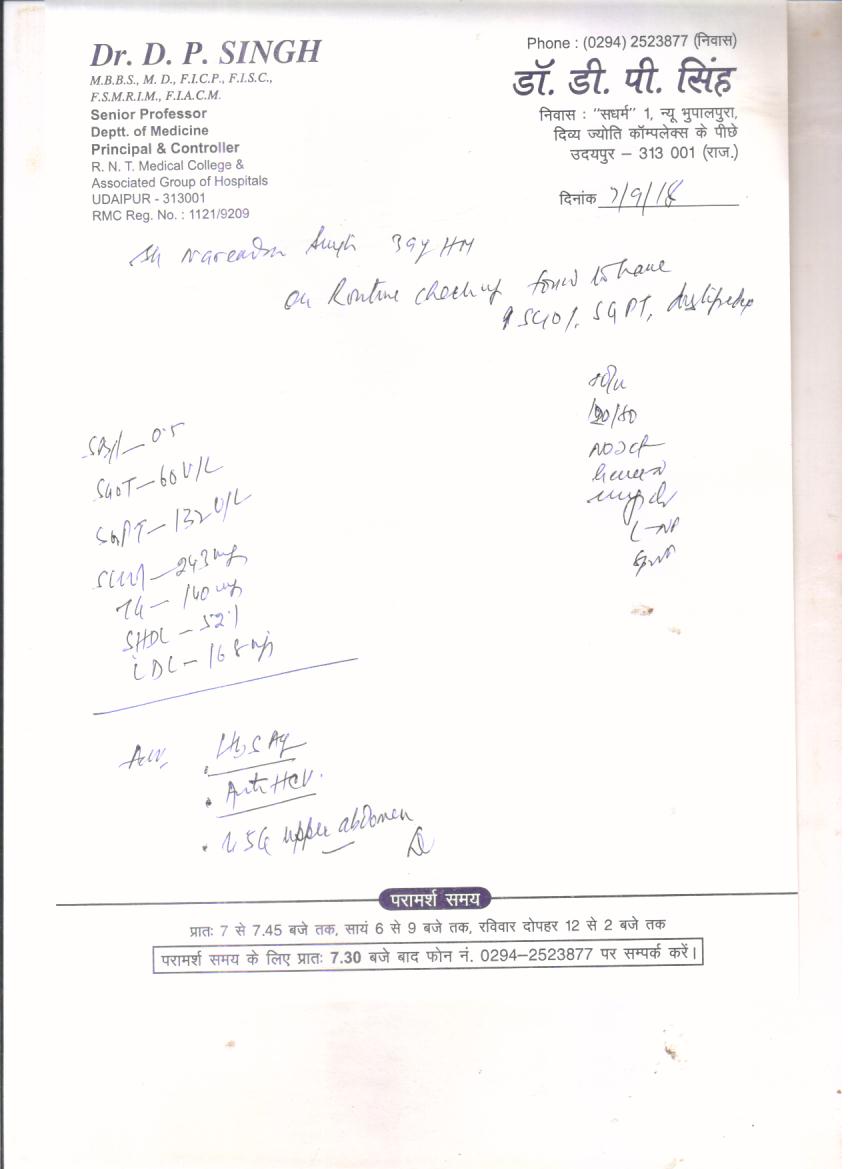 Dr. D. P. SINGH
M.B.B.S., M. D., F.I.C.P., F.I.S.C.,
F.S.M.R.I.M., F.I.A.C.M.
Senior Professor
Deptt. of Medicine
Principal & Controller
R. N. T. Medical College &
Associated Group of Hospitals
UDAIPUR - 313001
RMC Reg. No. : 1121/9209
Phone : (0294) 2523877 (निवास)
डॉ. डी. पी. सिंह
निवास : "सधर्म" 1, न्यू भुपालपुरा,
दिव्य ज्योति कॉम्पलेक्स के पीछे
उदयपुर – 313 001 (राज.)
दिनांक 7/9/18
Narendra Singh 39y HM
on Routine checkup found to have
SGOT, SGPT,
120/80
SGOT – 60 U/L
SGPT – 132 U/L
243 mg
TG – 140 mg
SHDL – 52
LDL – 168 mg
Adv.
. HBsAg
. Anti HCV.
. USG upper abdomen
परामर्श समय
प्रातः 7 से 7.45 बजे तक, सायं 6 से 9 बजे तक, रविवार दोपहर 12 से 2 बजे तक
परामर्श समय के लिए प्रातः 7.30 बजे बाद फोन नं. 0294–2523877 पर सम्पर्क करें।